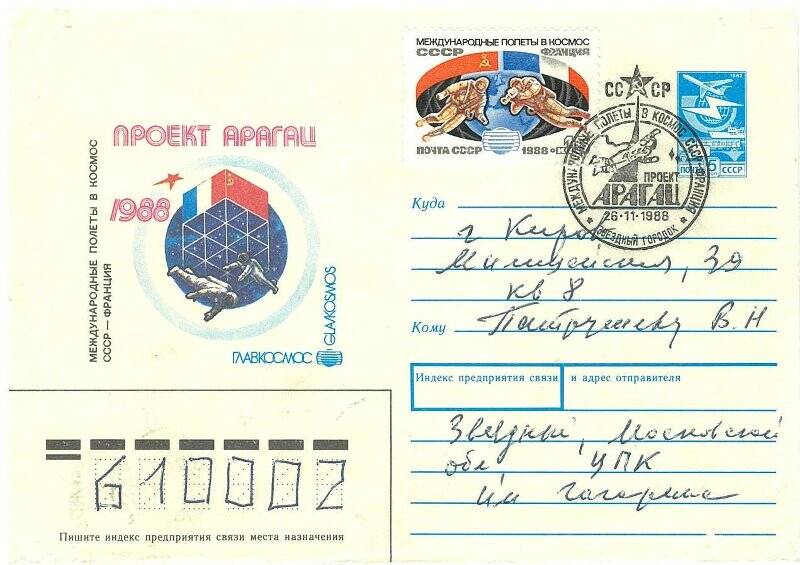 МЕЖДУНАРОДНЫЕ ПОЛЕТЫ В КОСМОС
СССР ФРАНЦИЯ
ПОЧТА СССР 1988
СССР
МЕЖДУНАРОДНЫЕ ПОЛЕТЫ В КОСМОС СССР-ФРАНЦИЯ
ПРОЕКТ
АРАГАЦ
26-11-1988
ЗВЕЗДНЫЙ ГОРОДОК
1983
ПОЧТА 5 СССР
ПРОЕКТ АРАГАЦ
1988
МЕЖДУНАРОДНЫЕ ПОЛЕТЫ В КОСМОС
СССР — ФРАНЦИЯ
ГЛАВКОСМОС
GLAVKOSMOS
Куда
г Киров
Милицейская, 39
кв 8
Кому Патрушеву В. Н
Индекс предприятия связи и адрес отправителя
Звездный, Московской
обл ЦПК
им Гагарина
610002
Пишите индекс предприятия связи места назначения